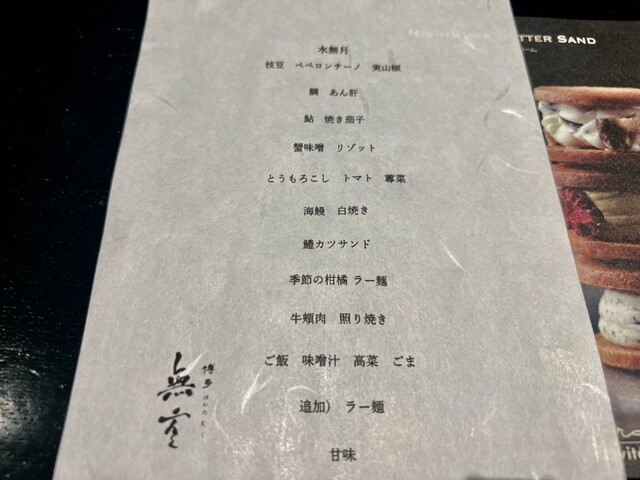 水無月
枝豆 ペペロンチーノ 実山椒
鯛 あん肝
鮎 焼き茄子
蟹味噌 リゾット
とうもろこし トマト 蓴菜
海鰻 白焼き
鱧カツサンド
季節の柑橘 ラー麺
牛頬肉 照り焼き
ご飯 味噌汁 高菜 ごま
追加） ラー麺
甘味
博多
はかた むく
無
TTER SAND